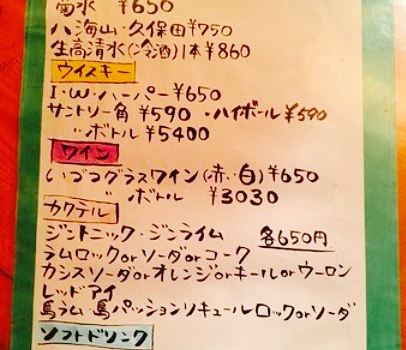 菊水 ¥650
八海山・久保田¥750
生高清水(冷酒)1本¥860
ウイスキー
I・W・ハーパー¥650
サントリー角¥590 ・ハイボール¥590
〃ボトル¥5400
ワイン
いづつグラスワイン(赤・白)¥650
〃 ボトル ¥3030
カクテル
ジントニック・ジンライム 各650円
ラムロックorソーダorコーク
カシスソーダorオレンジorキールorウーロン
レッドアイ
島ラム・島パッションリキュールロックorソーダ
ソフトドリンク